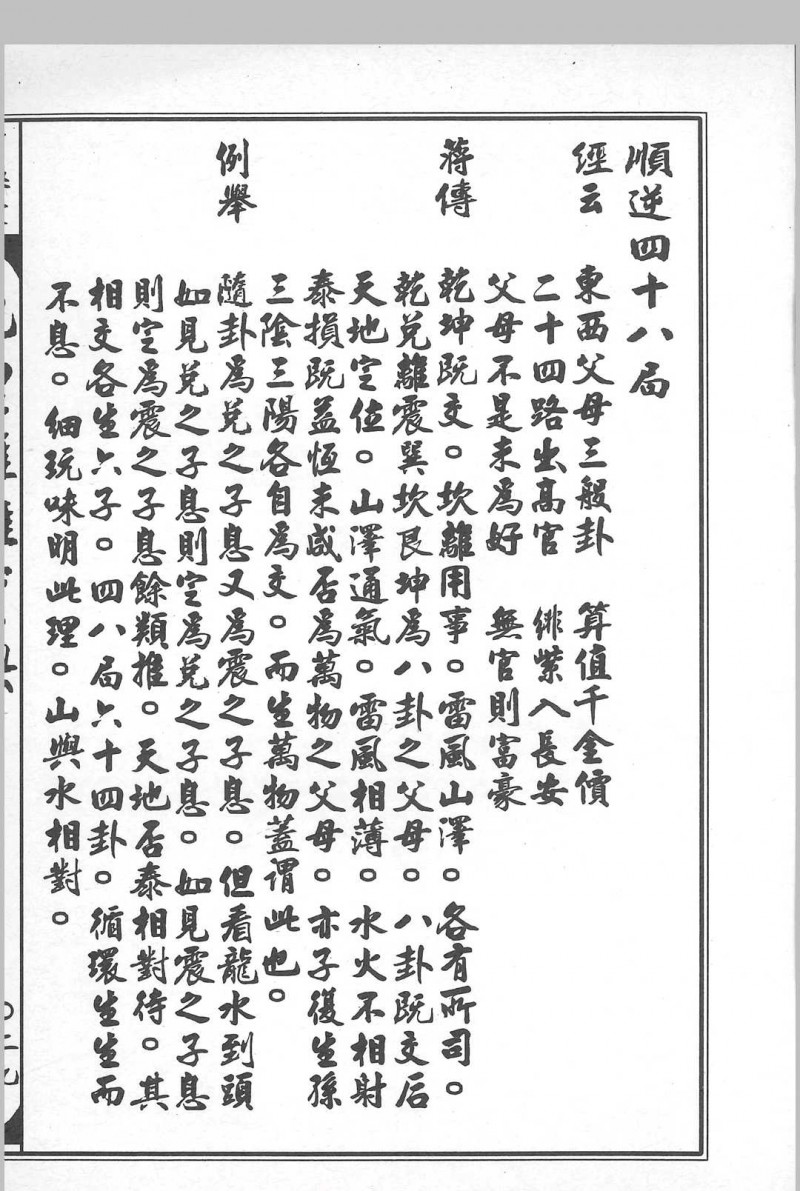 順逆四十八局
經云 東西父母三般卦 算值千金價
二十四路出高官 緋紫入長安
父母不是未為好 無官則富豪
蔣傳 乾坤既交。坎離用事。雷風山澤。各有所司。
乾兌離震巽坎艮坤為八卦之父母。八卦既交后
天地定位。山澤通氣。雷風相薄。水火不相射
泰損既益恆未咸否為萬物之父母。亦子復生孫
三陰三陽各自為交。而生萬物蓋謂此也。
例舉 隨卦為兌之子息又為震之子息。但看龍水到頭
如見兌之子息則定為兌之子息。如見震之子息
則定為震之子息餘類推。天地否泰相對待。其
相交各生六子。四八局六十四卦。循環生生而
不息。細玩味明此理。山與水相對。
〇二九